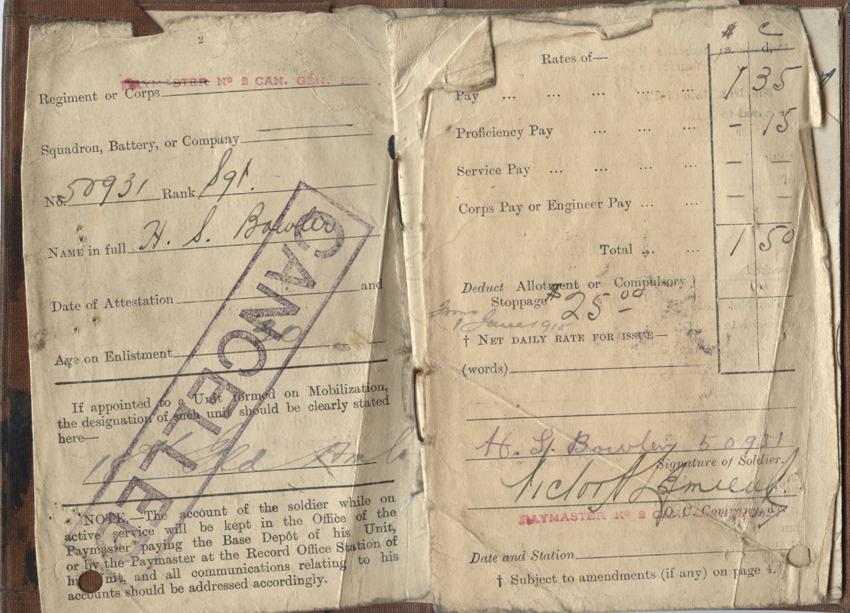 2
PAYMASTER Nº 2 CAN. GEN.
Regiment or Corps
Squadron, Battery, or Company
No. 50931 Rank Sgt.
NAME in full H. S. Bowler
Date of Attestation and
Age on Enlistment
If appointed to a Unit formed on Mobilization,
the designation of such unit should be clearly stated
here—
CANCELLED
NOTE.—The account of the soldier while on
active service will be kept in the Office of the
Paymaster paying the Base Depôt of his Unit,
or by the Paymaster at the Record Office Station of
his Unit, and all communications relating to his
accounts should be addressed accordingly.
$ c
Rates of— s. d.
Pay ... ... ... ... ... 1 35
Proficiency Pay ... ... ... - 15
Service Pay ... ... ... - -
Corps Pay or Engineer Pay ... ... - -
Total ... ... 1 50
Deduct Allotment or Compulsory }
Stoppage $25.00
From 1 June 1915
† NET DAILY RATE FOR ISSUE—
(words)
H. S. Bowler 50931
Signature of Soldier.
O. C. Company,
PAYMASTER Nº 2 CAN.
Date and Station
† Subject to amendments (if any) on page 4.